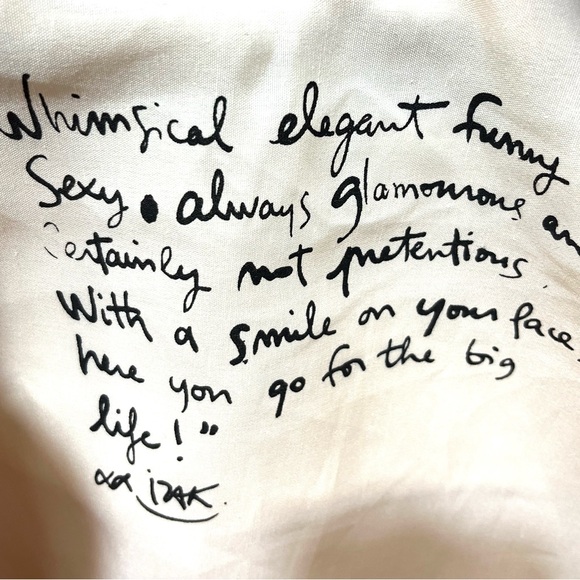 Whimsical elegant funny
Sexy • always glamourous an
Certainly not pretentious.
With a smile on your face.
here you go for the big
life!"
xx iZAK.